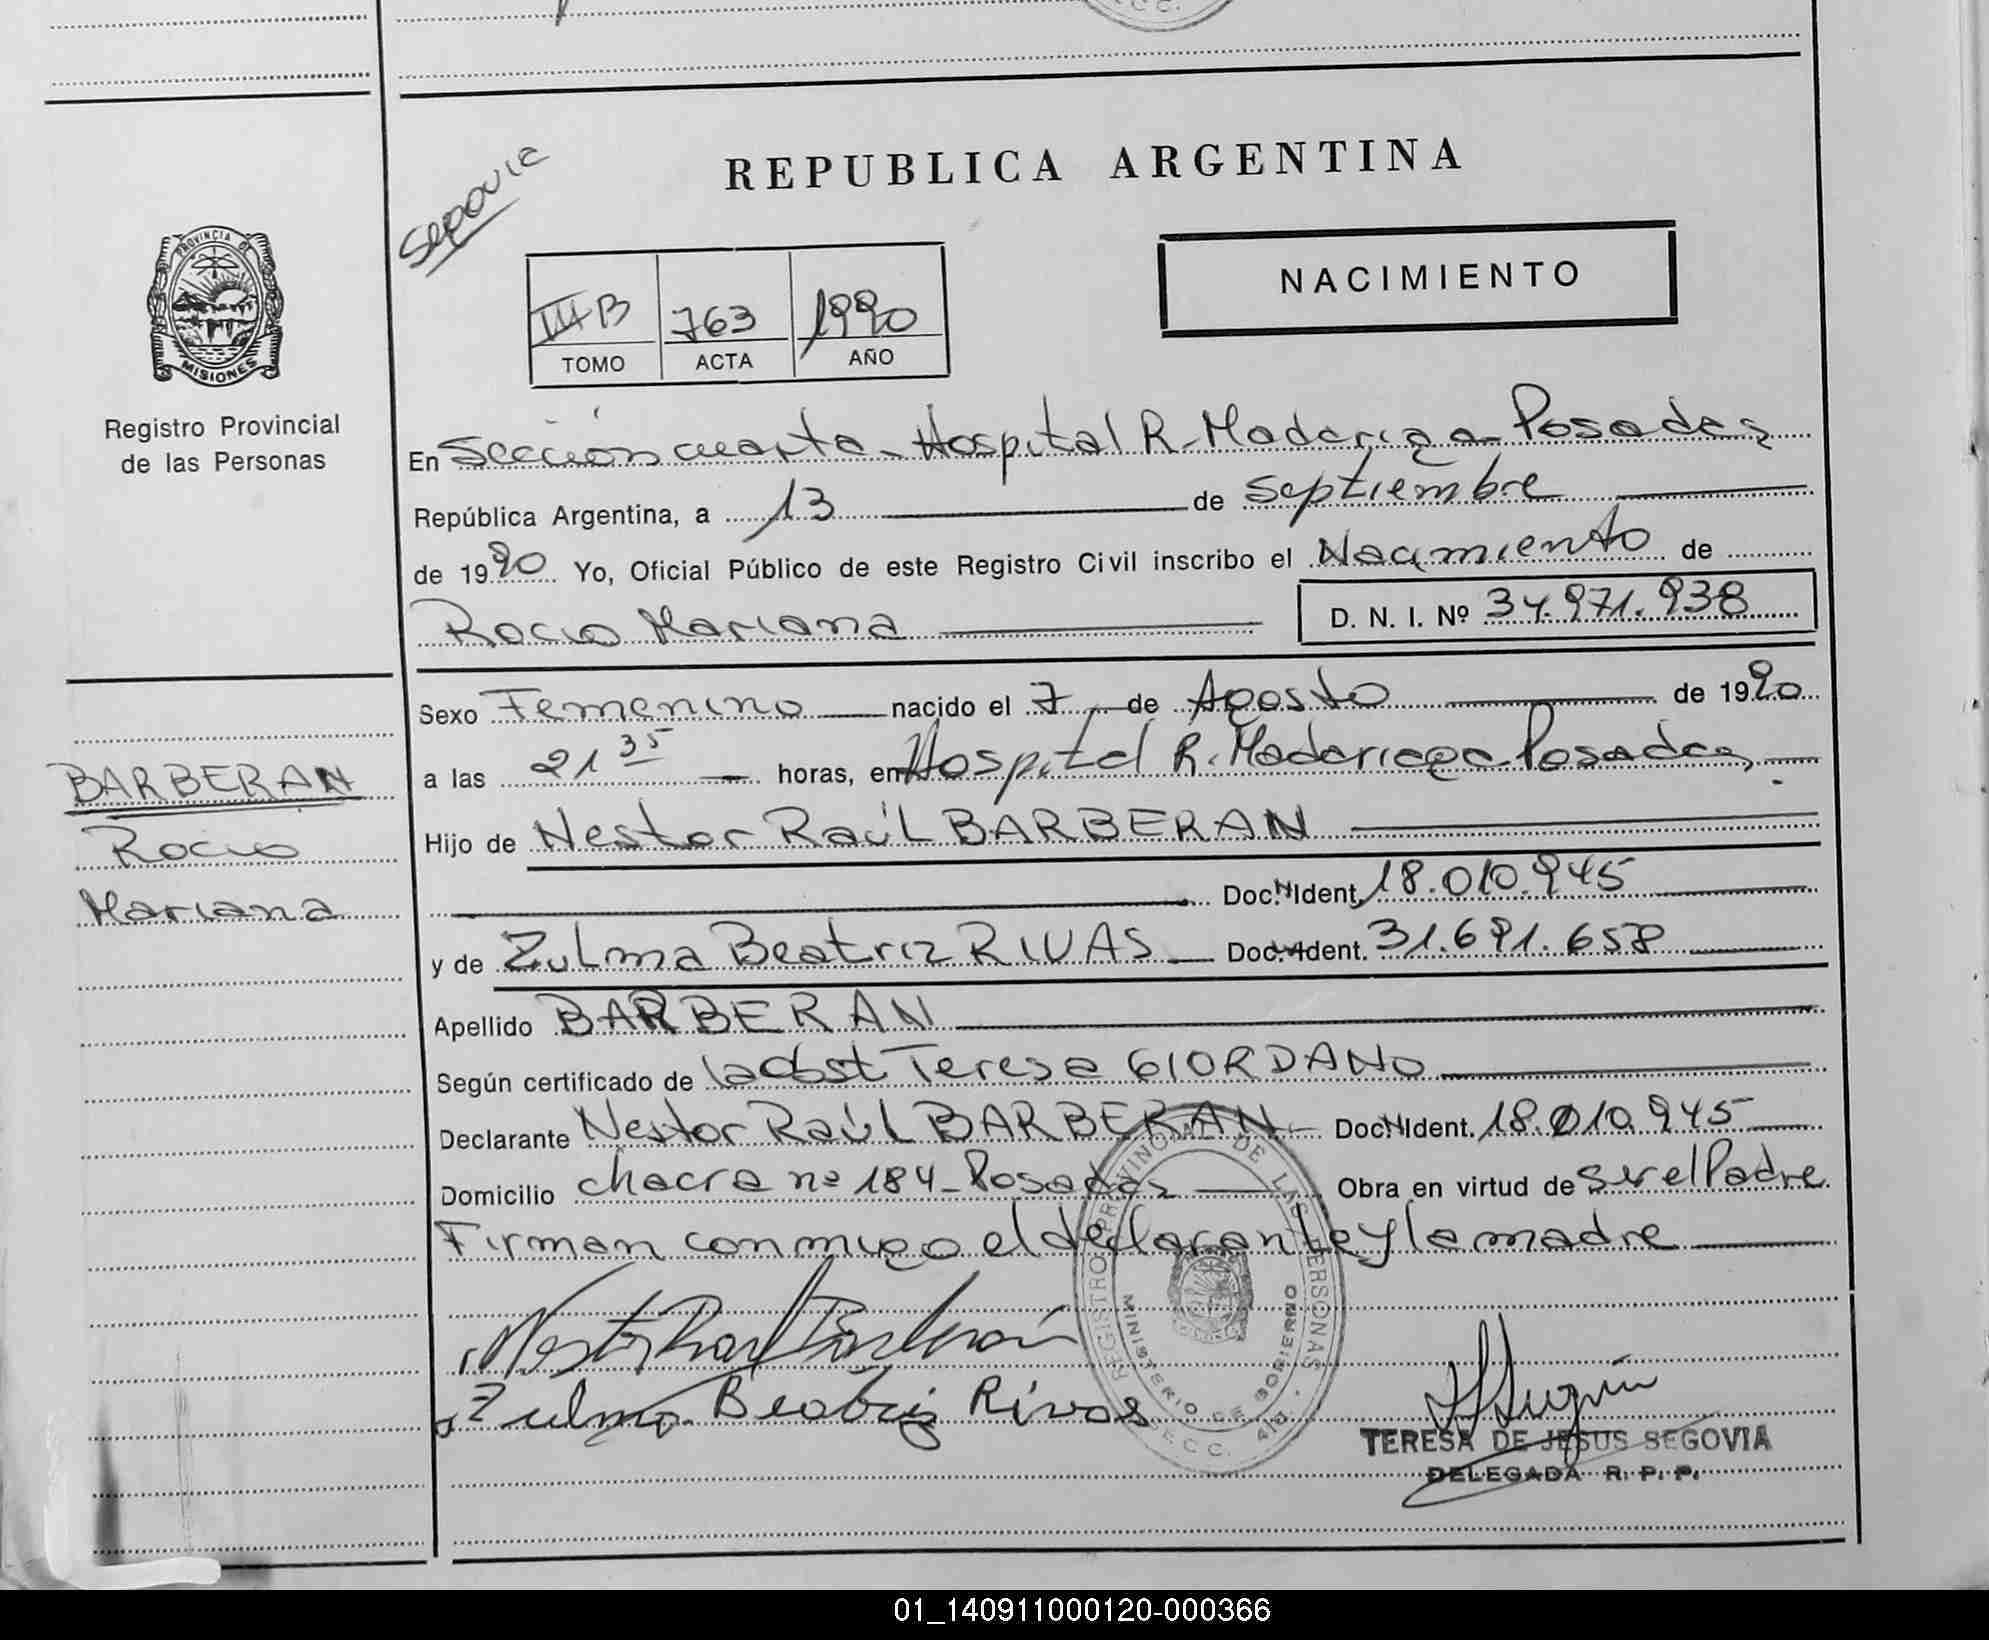 C. C.
REPUBLICA ARGENTINA
Segovia
NACIMIENTO
III B 763 1990
TOMO ACTA AÑO
PROVINCIA DE
MISIONES
Registro Provincial
de las Personas
En Sección cuarta - Hospital R. Madariaga - Posadas
República Argentina, a 13 de Septiembre
de 1990 Yo, Oficial Público de este Registro Civil inscribo el Nacimiento de
Rocio Mariana D. N. I. Nº 34.971.938
Sexo Femenino nacido el 7 de Agosto de 1990
a las 21 35 horas, en Hospital R. Madariaga Posadas
BARBERAN
Rocio
Mariana
Hijo de Nestor Raúl BARBERAN
Doc. N Ident. 18.010.945
y de Zulma Beatriz RIVAS Doc. N Ident. 31.691.658
Apellido BARBERAN
Según certificado de la obst Teresa GIORDANO
Declarante Nestor Raúl BARBERAN Doc N Ident. 18.010.945
Domicilio chacra nº 184 - Posadas Obra en virtud de ser el Padre
Firman conmigo el declarante y la madre
REGISTRO PROVINCIAL DE LAS PERSONAS
MINISTERIO DE GOBIERNO
SECC. 4ta.
Nestor Raul Barberán
Zulma Beatriz Rivas
TERESA DE JESUS SEGOVIA
DELEGADA R. P. P.
01_140911000120-000366